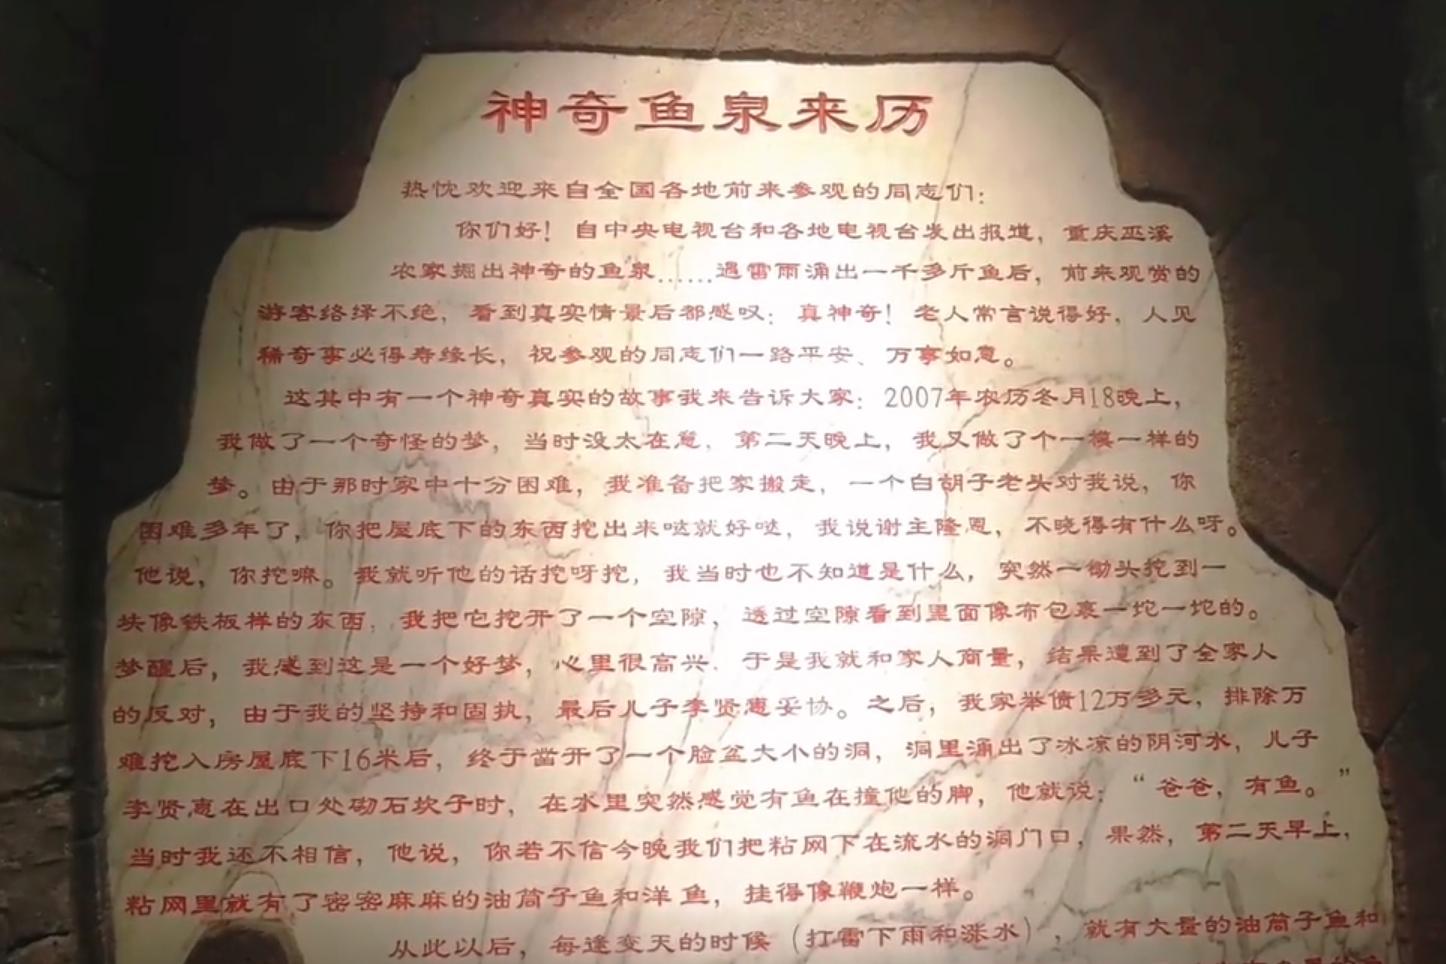 神奇鱼泉来历
热忱欢迎来自全国各地前来参观的同志们：
你们好！自中央电视台和各地电视台发出报道，重庆巫溪
农家掘出神奇的鱼泉……遇雷雨涌出一千多斤鱼后，前来观赏的
游客络绎不绝，看到真实情景后都感叹：真神奇！老人常言说得好，人见
稀奇事必得寿缘长，祝参观的同志们一路平安、万事如意。
这其中有一个神奇真实的故事我来告诉大家：2007年农历冬月18晚上，
我做了一个奇怪的梦，当时没太在意，第二天晚上，我又做了个一模一样的
梦。由于那时家中十分困难，我准备把家搬走，一个白胡子老头对我说，你
困难多年了，你把屋底下的东西挖出来哒就好哒，我说谢主隆恩，不晓得有什么呀。
他说，你挖嘛。我就听他的话挖呀挖，我当时也不知道是什么，突然一锄头挖到一
块像铁板样的东西，我把它挖开了一个空隙，透过空隙看到里面像布包裹一坨一坨的。
梦醒后，我感到这是一个好梦，心里很高兴，于是我就和家人商量，结果遭到了全家人
的反对，由于我的坚持和固执，最后儿子李贤惠妥协。之后，我家举债12万多元，排除万
难挖入房屋底下16米后，终于凿开了一个脸盆大小的洞，洞里涌出了冰凉的阴河水，儿子
李贤惠在出口处砌石坎子时，在水里突然感觉有鱼在撞他的脚，他就说：“爸爸，有鱼。”
当时我还不相信，他说，你若不信今晚我们把粘网下在流水的洞门口，果然，第二天早上，
粘网里就有了密密麻麻的油筒子鱼和洋鱼，挂得像鞭炮一样。
从此以后，每逢变天的时候（打雷下雨和涨水），就有大量的油筒子鱼和